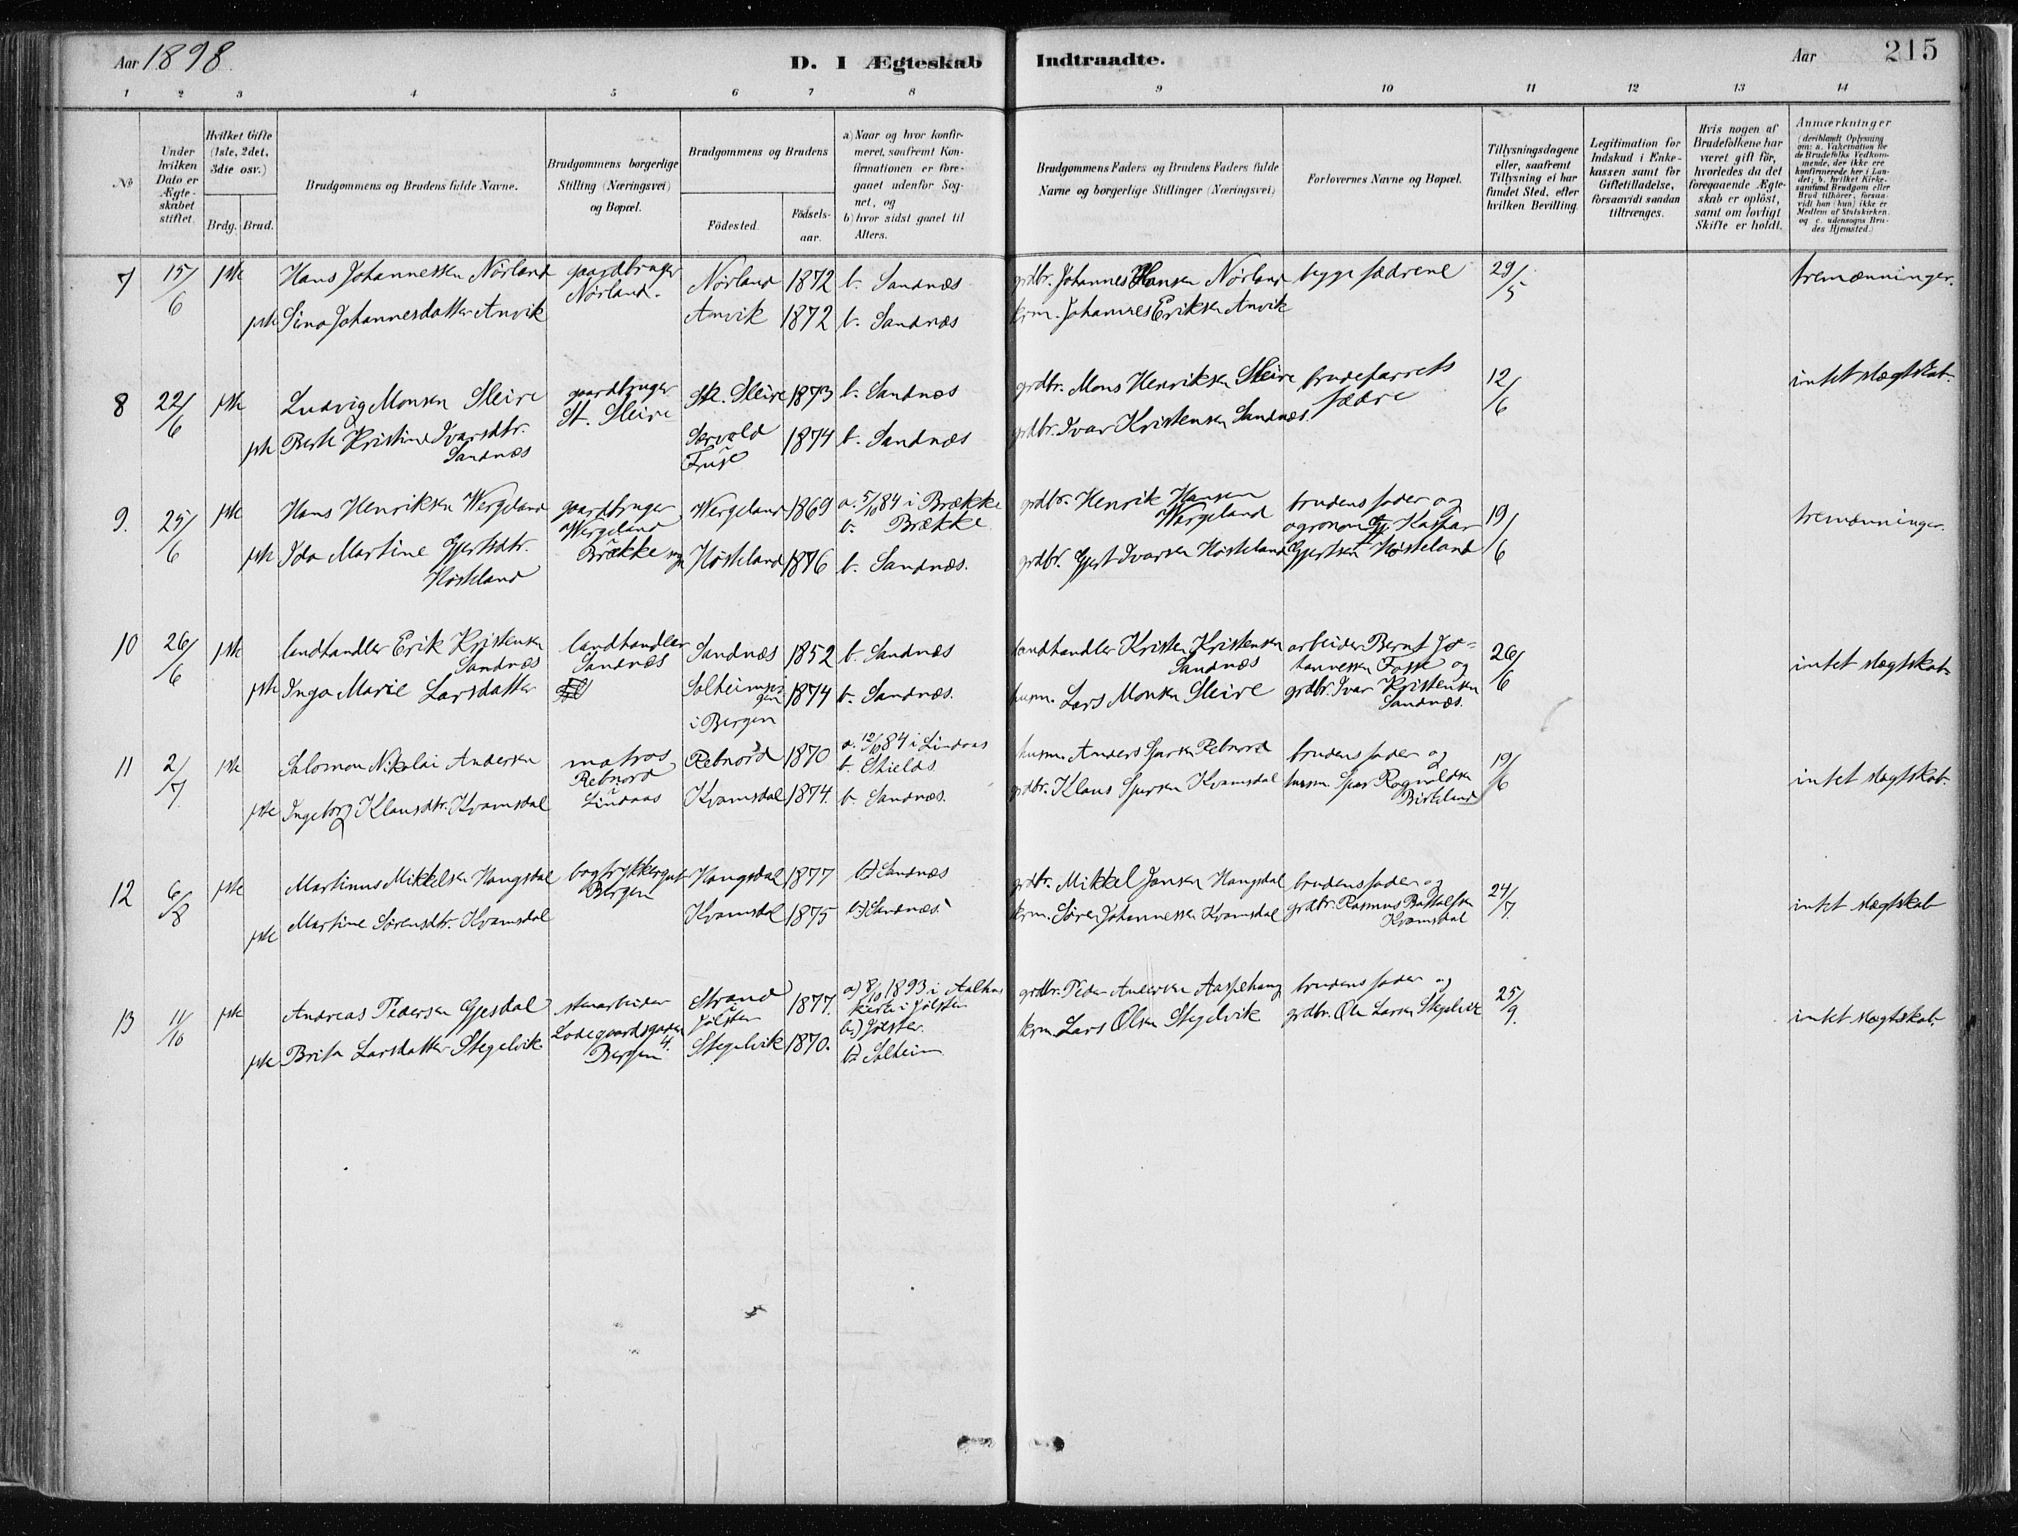 Aar 1898.
D. I Ægteskab Indtraadte.
Aar
215
1 2 3 4 5 6 7 8 9 10 11 12 13 14
No
Under hvilken Dato er Ægteskabet stiftet.
Hvilket Gifte (1ste, 2det, 3die osv.)
Brdg. Brud.
Brudgommens og Brudens fulde Navne.
Brudgommens borgerlige Stilling (Næringsvei) og Bopæl.
Brudgommens og Brudens
Födested.
Födsels-aar.
a) Naar og hvor konfirmeret, saafremt Konfirmationen er foregaaet udenfor Sognet, og
b) hvor sidst gaaet til Alters.
Brudgommens Faders og Brudens Faders fulde Navne og borgerlige Stillinger (Næringsvei)
Forlovernes Navne og Bopæl.
Tillysningsdagene eller, saafremt Tillysning ei har fundet Sted, efter hvilken Bevilling.
Legitimation for Indskud i Enkekassen samt for Giftetilladelse, forsaavidt saadan tiltrænges.
Hvis nogen af Brudefolkene har været gift för, hvorledes da det foregaaende Ægteskab er oplöst, samt om lovligt Skifte er holdt.
Anmærkninger
(deriblandt Oplysning om: a. Vakcination for de Brudefolks Vedkommende, der ikke ere konfirmerede her i Landet; b. hvilket Kirkesamfund Brudgom eller Brud tilhörer, forsaavidt han (hun) ikke er Medlem af Statskirken, og c. udensogns Brudes Hjemsted.)
7 15/6 1ste Hans Johannessen Nørland gaardbruger Nørland. Nørland 1872 b. Sandnæs grdbr. Johannes Hansen Nørland begge fædrene 29/5 tremænninger.
1ste Sina Johannesdatter Anvik Anvik 1872 b. Sandnæs krm. Johannes Eriksen Anvik
8 22/6 1ste Ludvig Monsen Sleire gaardbruger St. Sleire St. Sleire 1873 b. Sandnæs grdbr. Mons Henriksen Sleire brudeparrets fædre 12/6 intet slægtskab.
1ste Berte Kristine Ivarsdtr. Sandnæs 1874 b. Sandnæs grdbr. Ivar Kristensen Sandnæs.
9. 25/6 1ste Hans Henriksen Wergeland gaardbruger Wergeland Brække sogn Wergeland 1869 a. 5/10 84 i Brække b. Brække grdbr. Henrik Hansen Wergeland brudens fader og agronom Kaspar Gjertsen Høsteland 19/6 tremænninger.
1ste Ida Martine Gjertsdtr. Høsteland Høsteland 1876 b. Sandnæs. grdbr. Gjert Ivarsen Høsteland
10 26/6 1ste landhandler Erik Kristensen Sandnæs landhandler Sandnæs Sandnæs 1852 b. Sandnæs landhandler Kristen Kristensen Sandnæs arbeider Bernt Johannessen Fosse og grdbr. Ivar Kristensen Sandnæs. 26/6 intet slægtskab
1ste Inga Marie Larsdatter Solheimsgen i Bergen 1874 b. Sandnæs. husm. Lars Monsen Sleire
11 2/7 1ste Salomon Nikolai Andersen matros Rebnord Lindaas Rebnord 1870 a. 12/10 84 i Lindaas b. Shields husm. Anders Sparsen Rebnord brudens fader og husm. Spar Rognaldsen Birkeland 19/6 intet slægtskab.
1ste Ingeborg Klausdtr. Kvamsdal Kvamsdal 1874. b. Sandnæs. grdbr. Klaus Sparsen Kvamsdal
12 6/8 1ste Martinus Mikkelsen Haugsdal Bergen Haugsdal 1877 b) Sandnæs grdbr. Mikkel Jansen Haugsdal brudens fader og grdbr. Rasmus Kvamsdal 24/7. intet slægtskab
1ste Martine Sørensdtr. Kvamsdal Kvamsdal 1875 b) Sandnæs. krm. Søren Johannessen Kvamsdal
13 11/10 1ste Andreas Pedersen Gjesdal stenarbeider Ladegaardsgaden 4. Bergen Strand i Jølster 1877. a) 8/10 1893 i Aalhus kirke i Jølster b.) Jølster. grdbr. Peder Andersen Aaspehaug brudens fader og grdbr. Ole Larsen Stegelvik 25/9. intet slægtskab.
1ste Brita Larsdatter Stegelvik Stegelvik 1870. b) Solheim krm. Lars Olsen Stegelvik